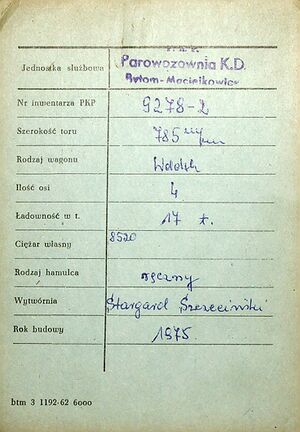 P.K.P.
Jednostka służbowa Parowozownia K.D.
Bytom-Maciejkowice
Nr inwentarza PKP 9278-2
Szerokość toru 785 mm
Rodzaj wagonu Wddxh
Ilość osi 4
Ładowność w t. 17 t.
Ciężar własny 8520
Rodzaj hamulca ręczny
Wytwórnia Stargard Szczeciński
Rok budowy 1975
btm 3 1192-62 6000